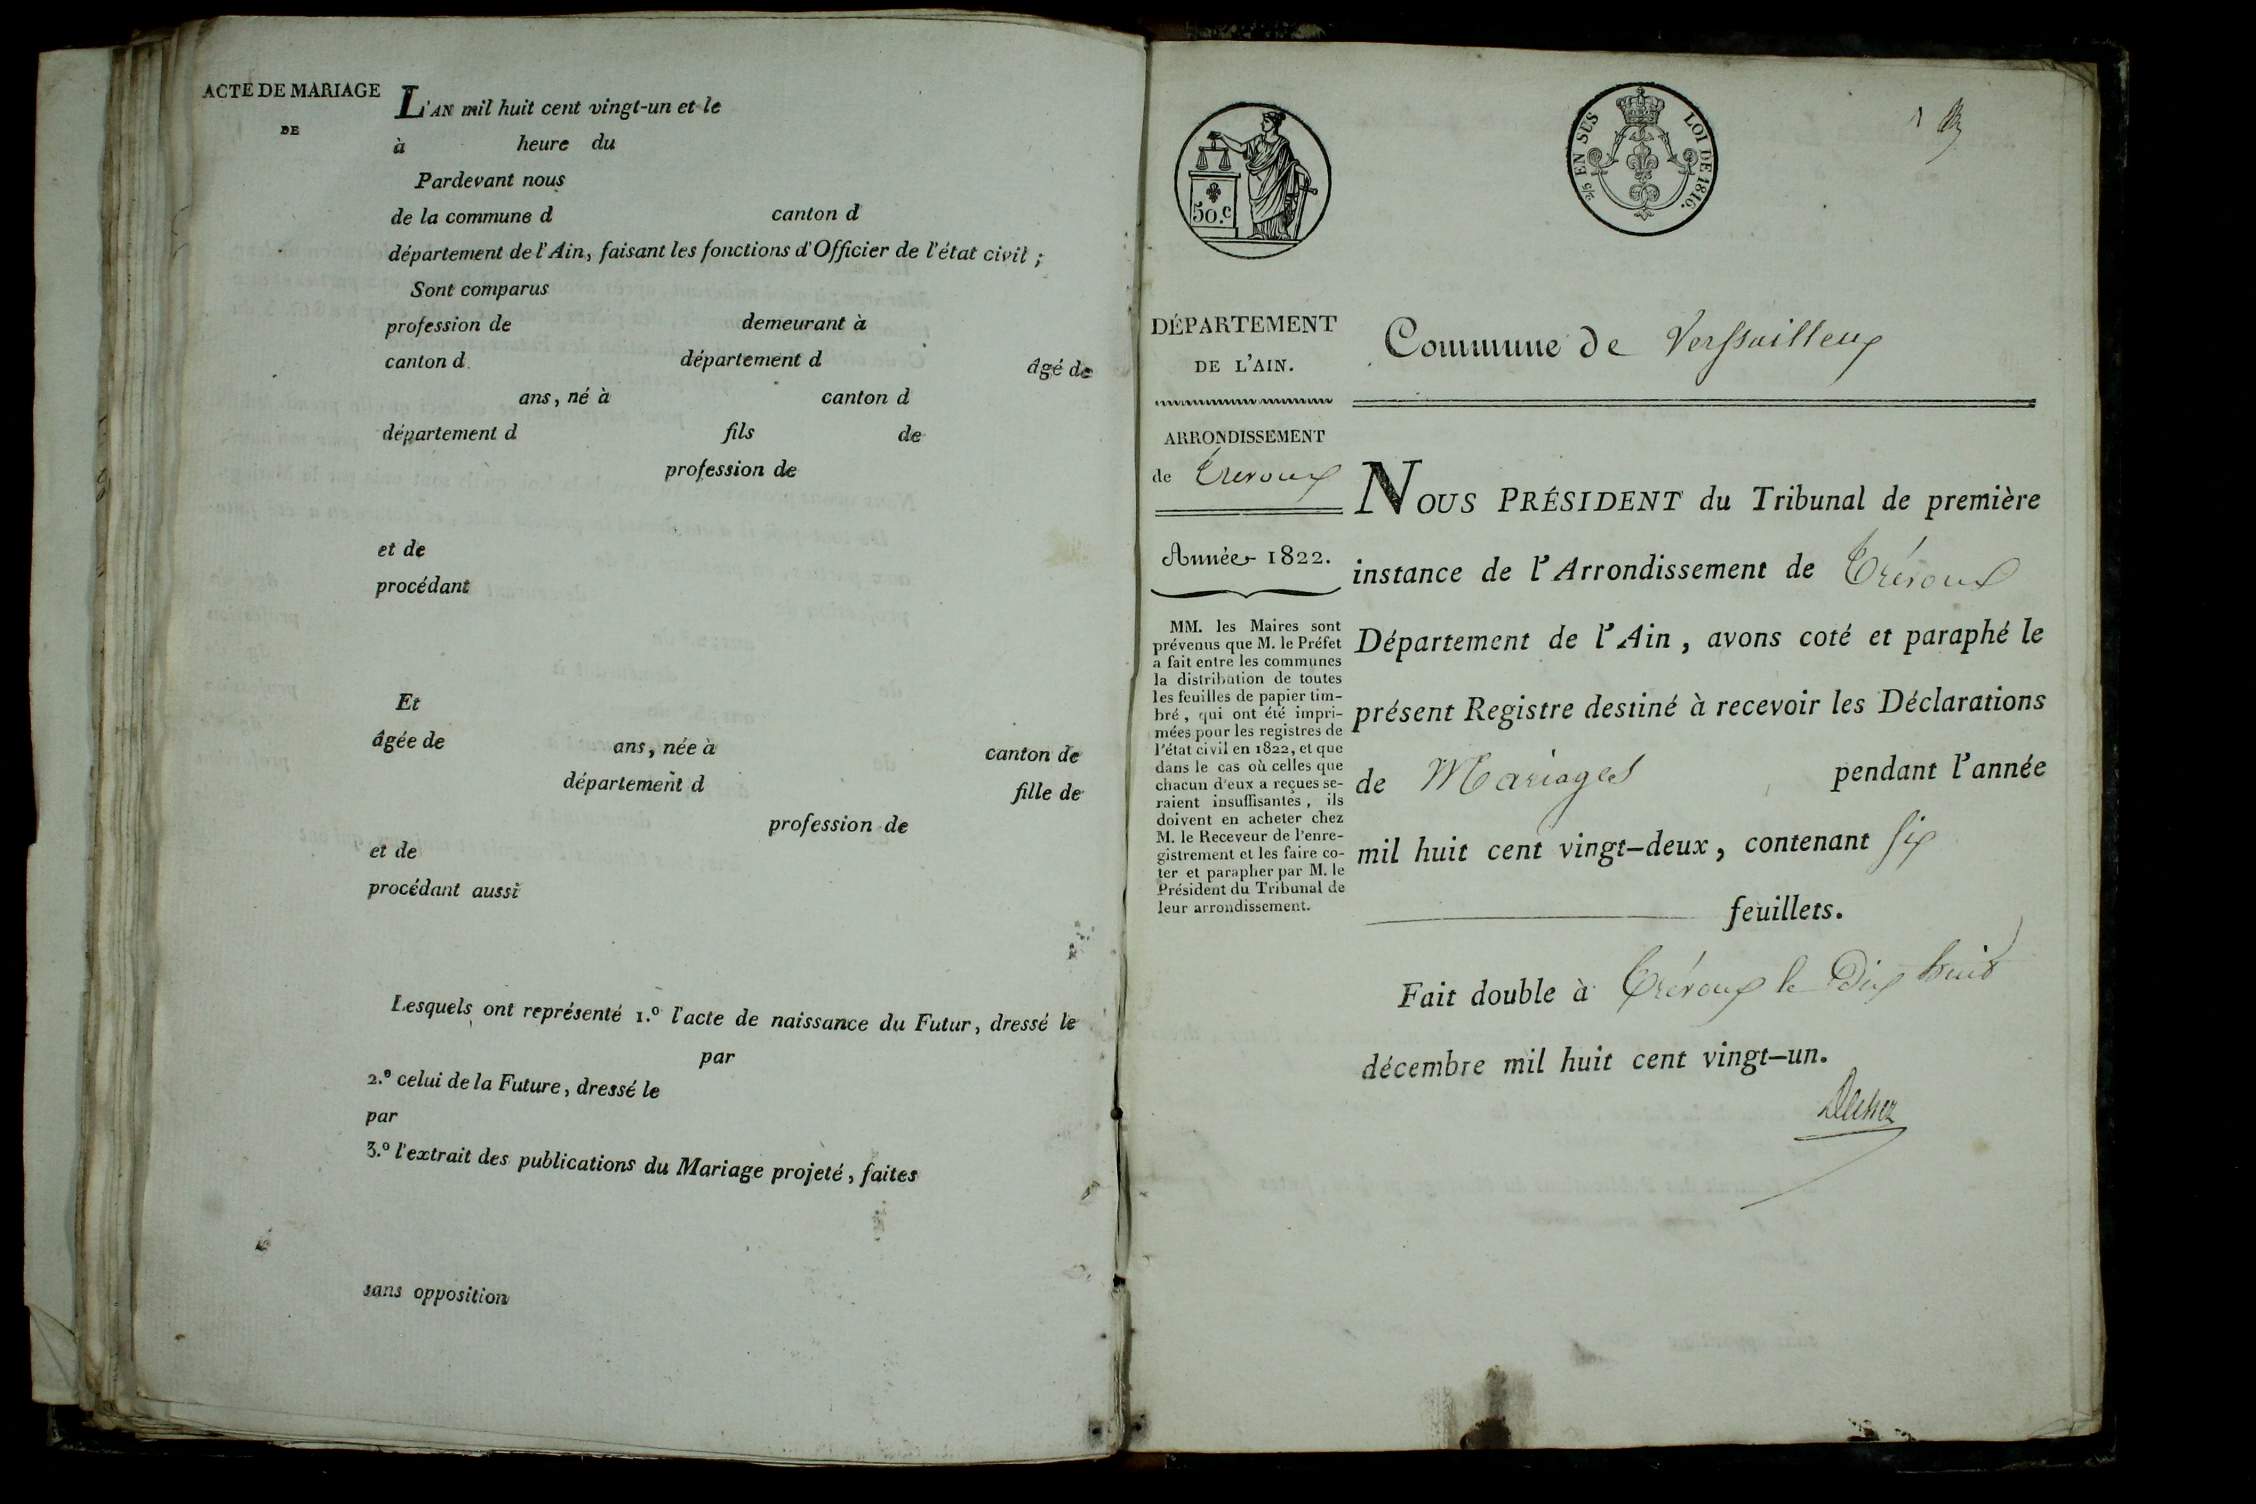 ACTE DE MARIAGE
DE
L'AN mil huit cent vingt-un et le
à heure du
Pardevant nous
de la commune d canton d
département de l'Ain, faisant les fonctions d'Officier de l'état civil ;
Sont comparus
profession de demeurant à
canton d département d âgé de
ans, né à canton d
département d fils de
profession de
et de
procédant
Et
âgée de ans, née à canton de
département d fille de
profession de
et de
procédant aussi
Lesquels ont représenté 1.º l'acte de naissance du Futur, dressé le
par
2.º celui de la Future, dressé le
par
3.º l'extrait des publications du Mariage projeté, faites
sans opposition
50.c
2/5 EN SUS LOI DE 1816.
1
DÉPARTEMENT
DE L'AIN.
ARRONDISSEMENT
de Trevoux
Année 1822.
MM. les Maires sont
prévenus que M. le Préfet
a fait entre les communes
la distribution de toutes
les feuilles de papier tim-
bré, qui ont été impri-
mées pour les registres de
l'état civil en 1822, et que
dans le cas où celles que
chacun d'eux a reçues se-
raient insuffisantes, ils
doivent en acheter chez
M. le Receveur de l'enre-
gistrement et les faire co-
ter et parapher par M. le
Président du Tribunal de
leur arrondissement.
Commune de Versailleux
NOUS PRÉSIDENT du Tribunal de première
instance de l'Arrondissement de Trévoux
Département de l'Ain, avons coté et paraphé le
présent Registre destiné à recevoir les Déclarations
de Mariages pendant l'année
mil huit cent vingt-deux, contenant six
feuillets.
Fait double à Trévoux le Dix huit
décembre mil huit cent vingt-un.